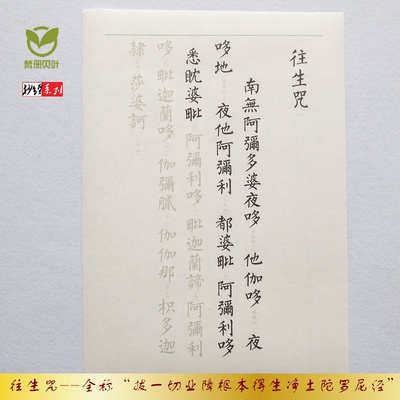 梵册贝叶
系列
往生咒
南無阿彌多婆夜哆 他伽哆 夜
哆地 夜他阿彌利 都婆毗 阿彌利哆
悉眈婆毗 阿彌利哆 毗迦蘭諦 阿彌利
哆 毗迦蘭哆 伽彌膩 伽伽那 枳多迦
隸 莎婆訶
往生咒--全称“拔一切业障根本得生净土陀罗尼经”